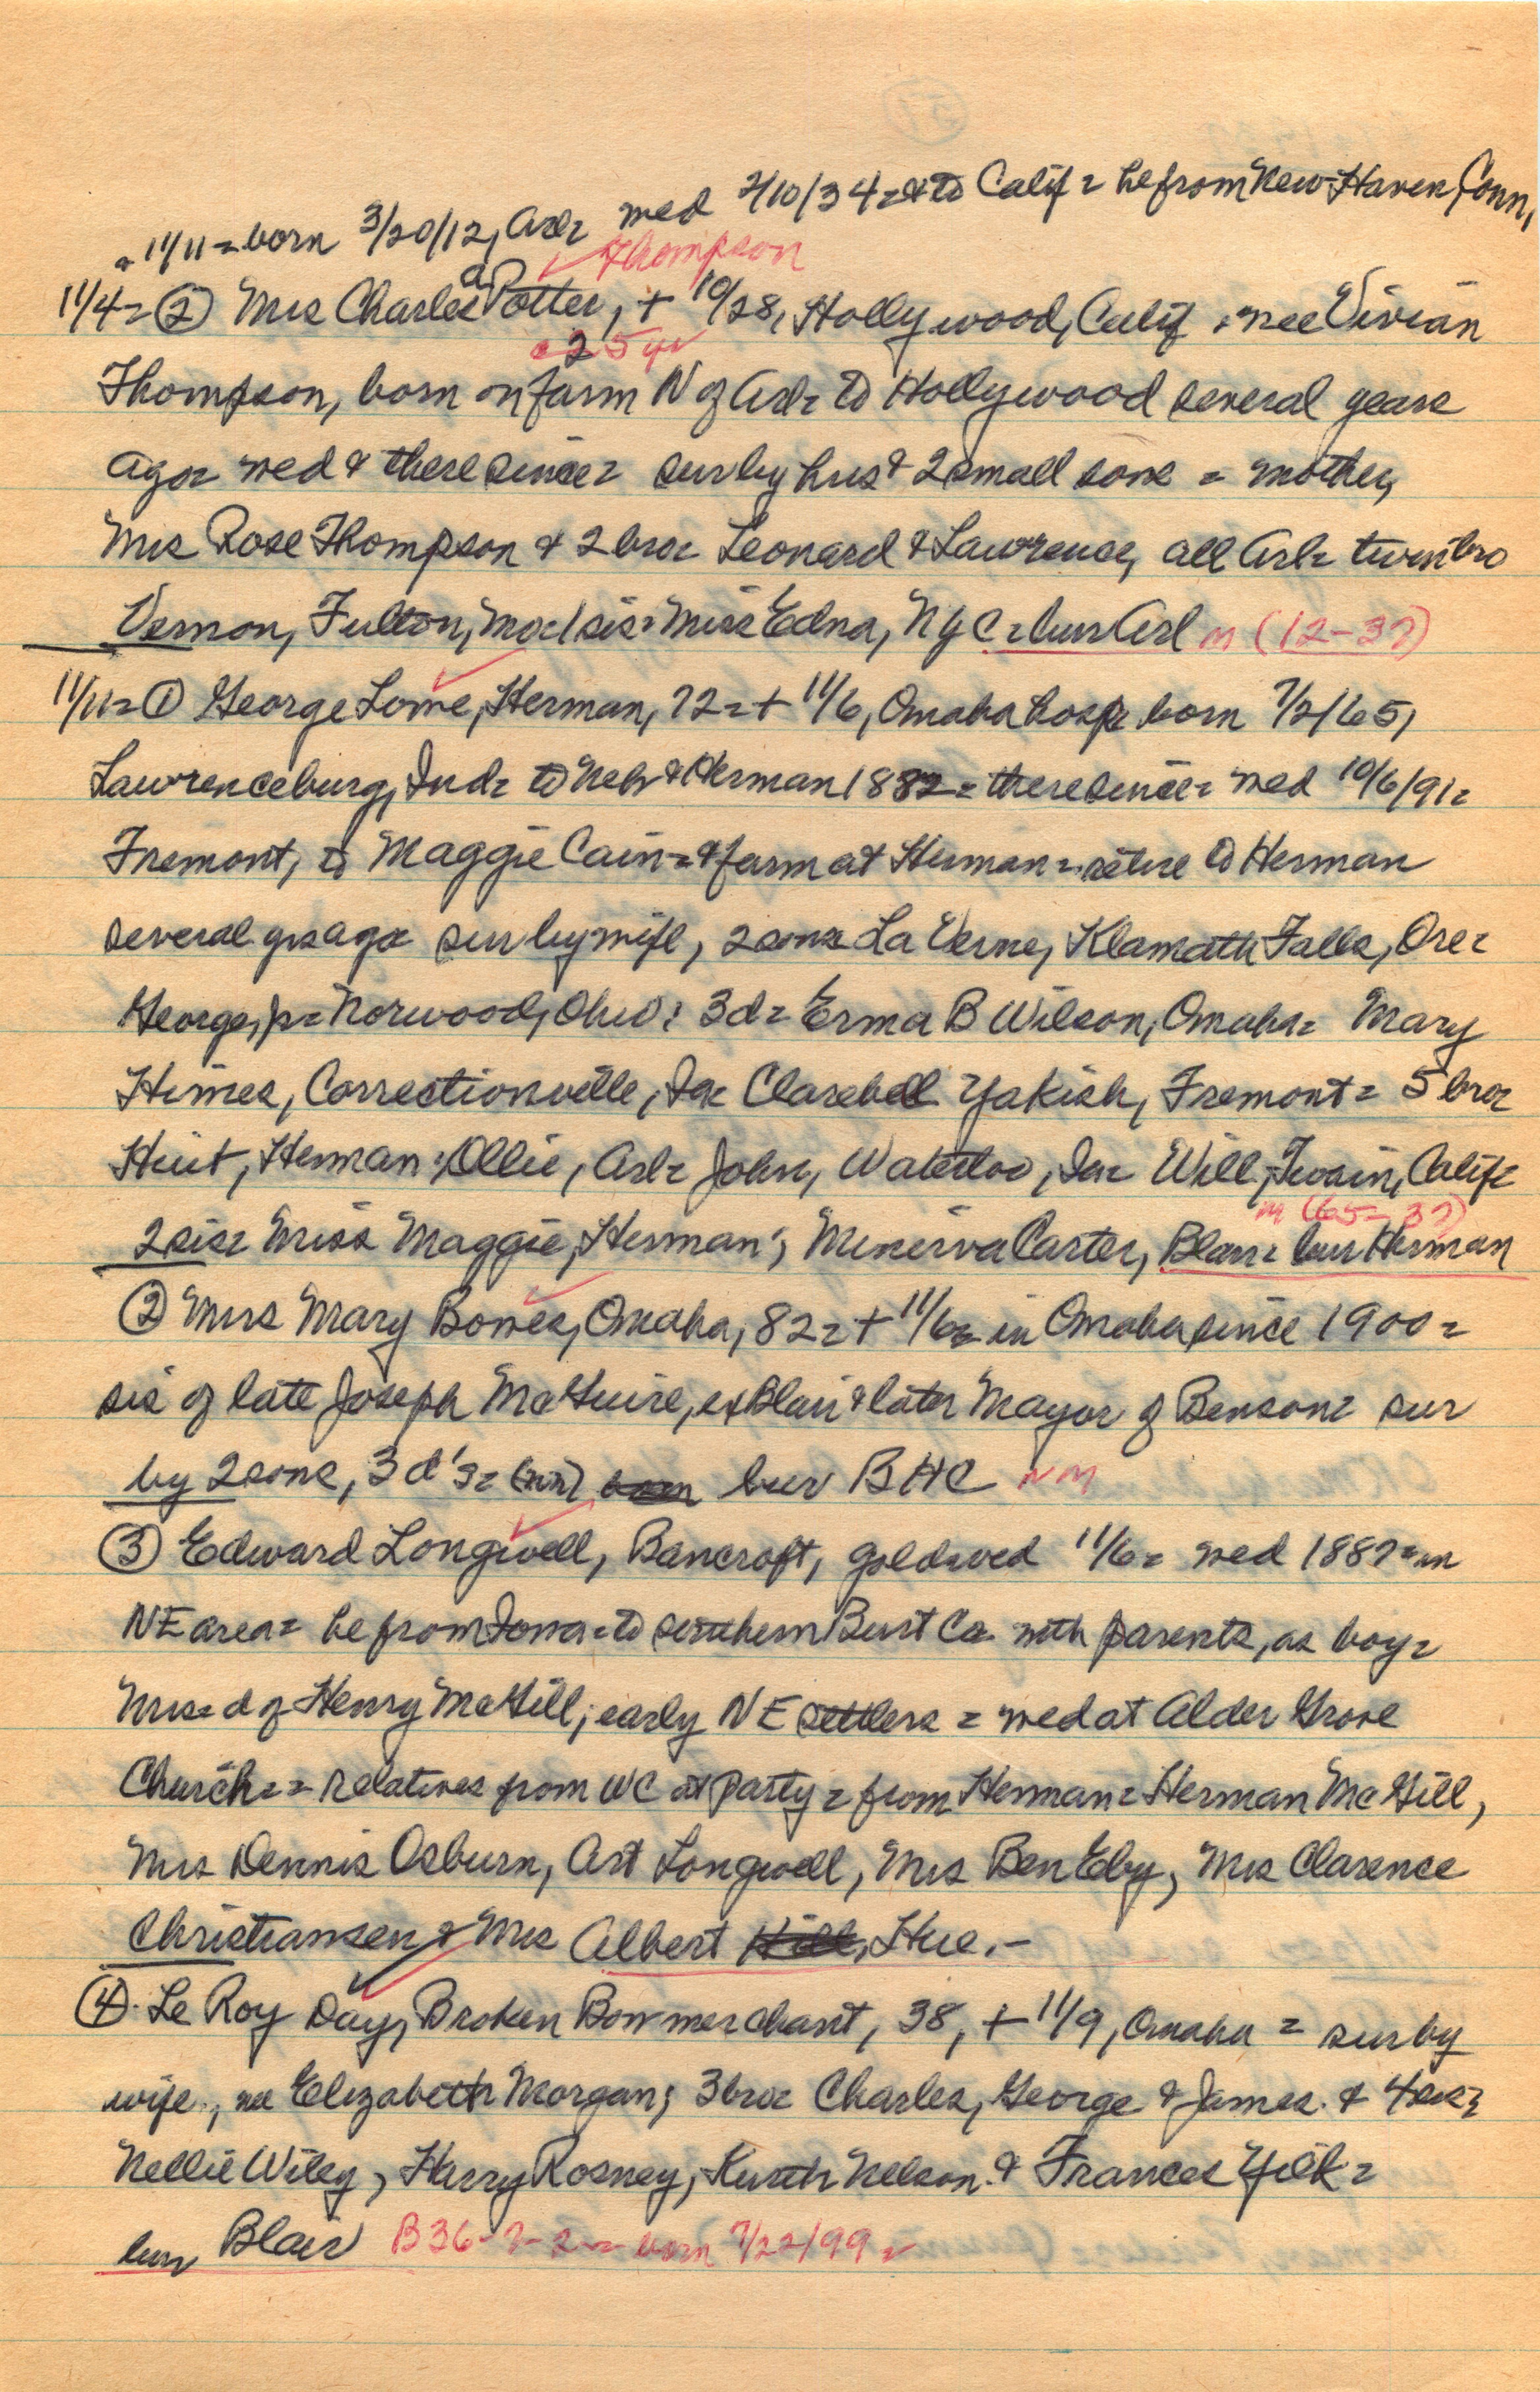 11/11 = born 3/20/12, Arl= wed 2/10/34 = & to Calif = he from New Haven, Conn,
Thompson
11/4 = ② Mrs Charles A Potter, + 10/28, Hollywood, Calif, nee Vivian
25 yr
Thompson, born on farm N of Arl= to Hollywood several years
ago= wed & there since= sur by hus & 2 small sons = mother,
Mrs Rose Thompson & 2 bro= Leonard & Lawrence, all Arl= twin bro
Vernon, Fulton, Mo= 1 sis= Miss Edna, NYC = bur Arl m (12-37)
11/11= ① George Lowe, Herman, 72 = + 11/6, Omaha hosp= born 7/2/65,
Lawrenceburg, Ind= to Neb & Herman 1882 = there since= wed 10/6/91=
Fremont, to Maggie Cain = & farm at Herman = retire to Herman
several yrs ago= sur by wife, 2 sons= La Verne, Klamath Falls, Ore=
George, jr= Norwood, Ohio; 3d= Erma B Wilson, Omaha= Mary
Himes, Correctionville, Ia= Clarebell Yakish, Fremont = 5 bro=
Huit, Herman; Ollie, Arl= John, Waterloo, Ia= Will, Twain, Calif=
m (65-37)
2 sis= Miss Maggie, Herman; Minerva Carter, Blair= bur Herman
② Mrs Mary Bowes, Omaha, 82 = + 11/6= in Omaha since 1900 =
sis of late Joseph McGuire, ex Blair & later Mayor of Benson= sur
by 2 sons, 3 d's= (nn) bur BHC N M
③ Edward Longwell, Bancroft, gold wed 11/6= wed 1887= in
NE area= he from Iowa= to southern Burt Co. with parents, as boy=
Mrs= d of Henry McGill, early NE settlers = wed at Alder Grove
Church= = relatives from WC at party = from Herman= Herman McGill,
Mrs Dennis Osburn, Art Longwell, Mrs Ben Eby, Mrs Clarence
Christiansen & Mrs Albert Hue.-
④ Le Roy Day, Broken Bow merchant, 38, + 11/9, Omaha = sur by
wife, nee Elizabeth Morgan; 3 bro= Charles, George & James. & 4 sis=
Nellie Wiley, Harry Rosney, Kurth Nelson & Frances Yick=
bur Blair B36-7-2 = born 7/22/99